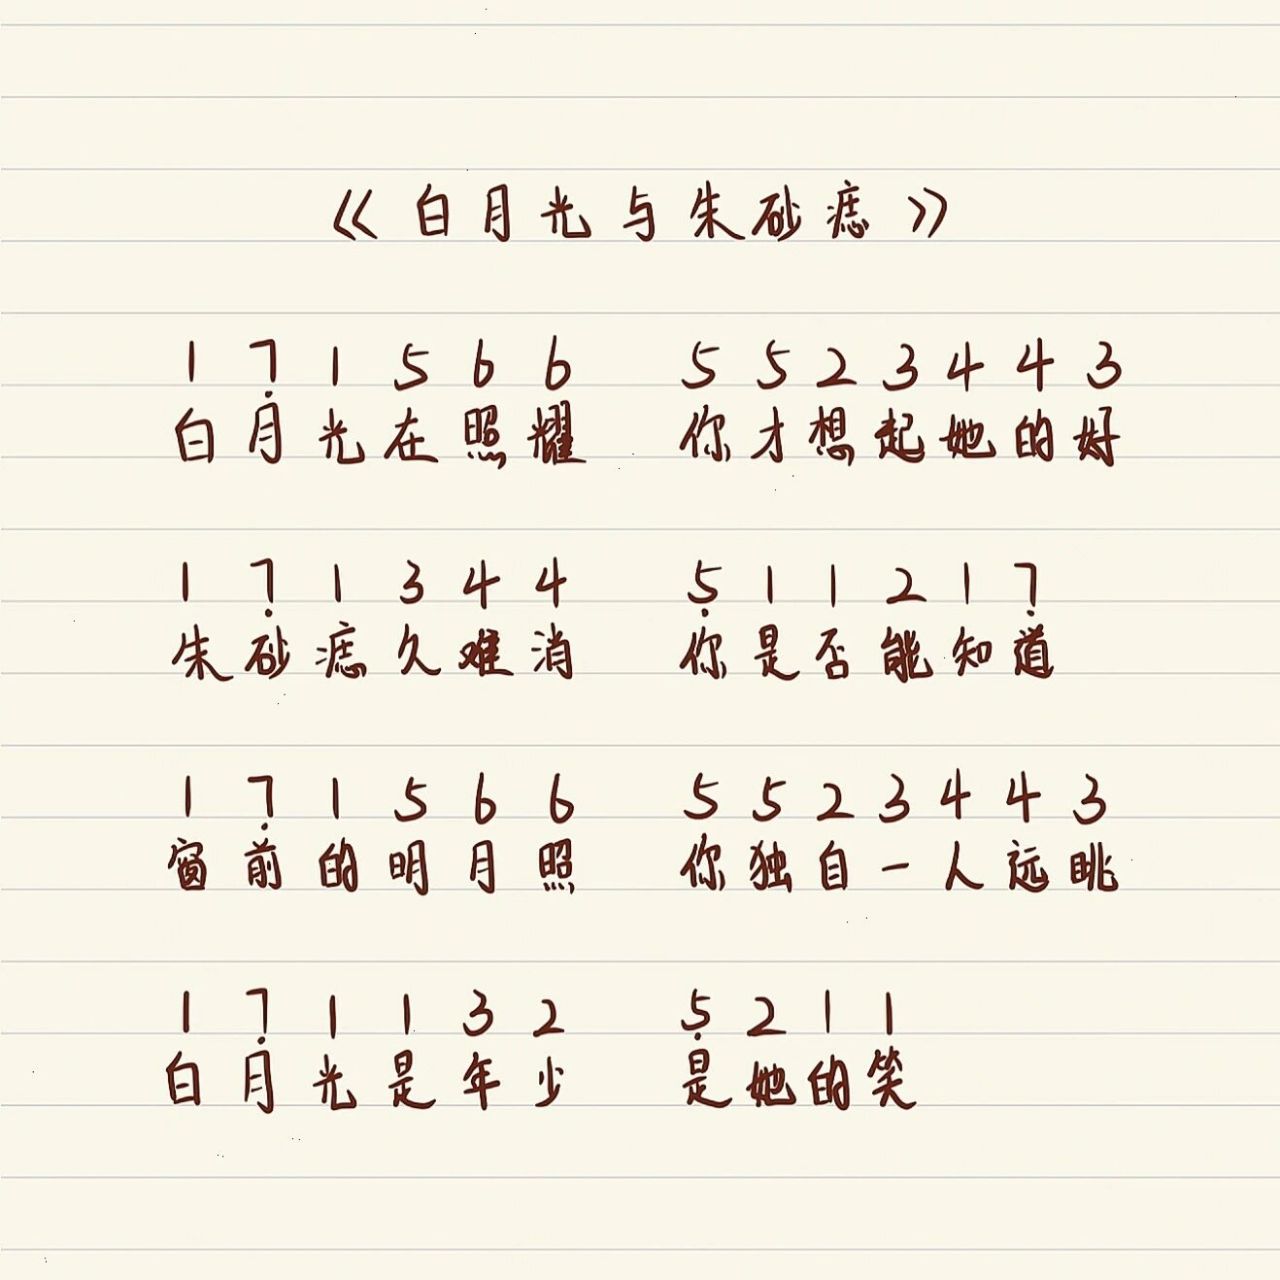 《白月光与朱砂痣》
1 7̣ 1 5 6 6 5 5 2 3 4 4 3
白月光在照耀 你才想起她的好
1 7̣ 1 3 4 4 5̣ 1 1 2 1 7̣
朱砂痣久难消 你是否能知道
1 7̣ 1 5 6 6 5 5 2 3 4 4 3
窗前的明月照 你独自一人远眺
1 7̣ 1 1 3 2 5̣ 2 1 1
白月光是年少 是她的笑